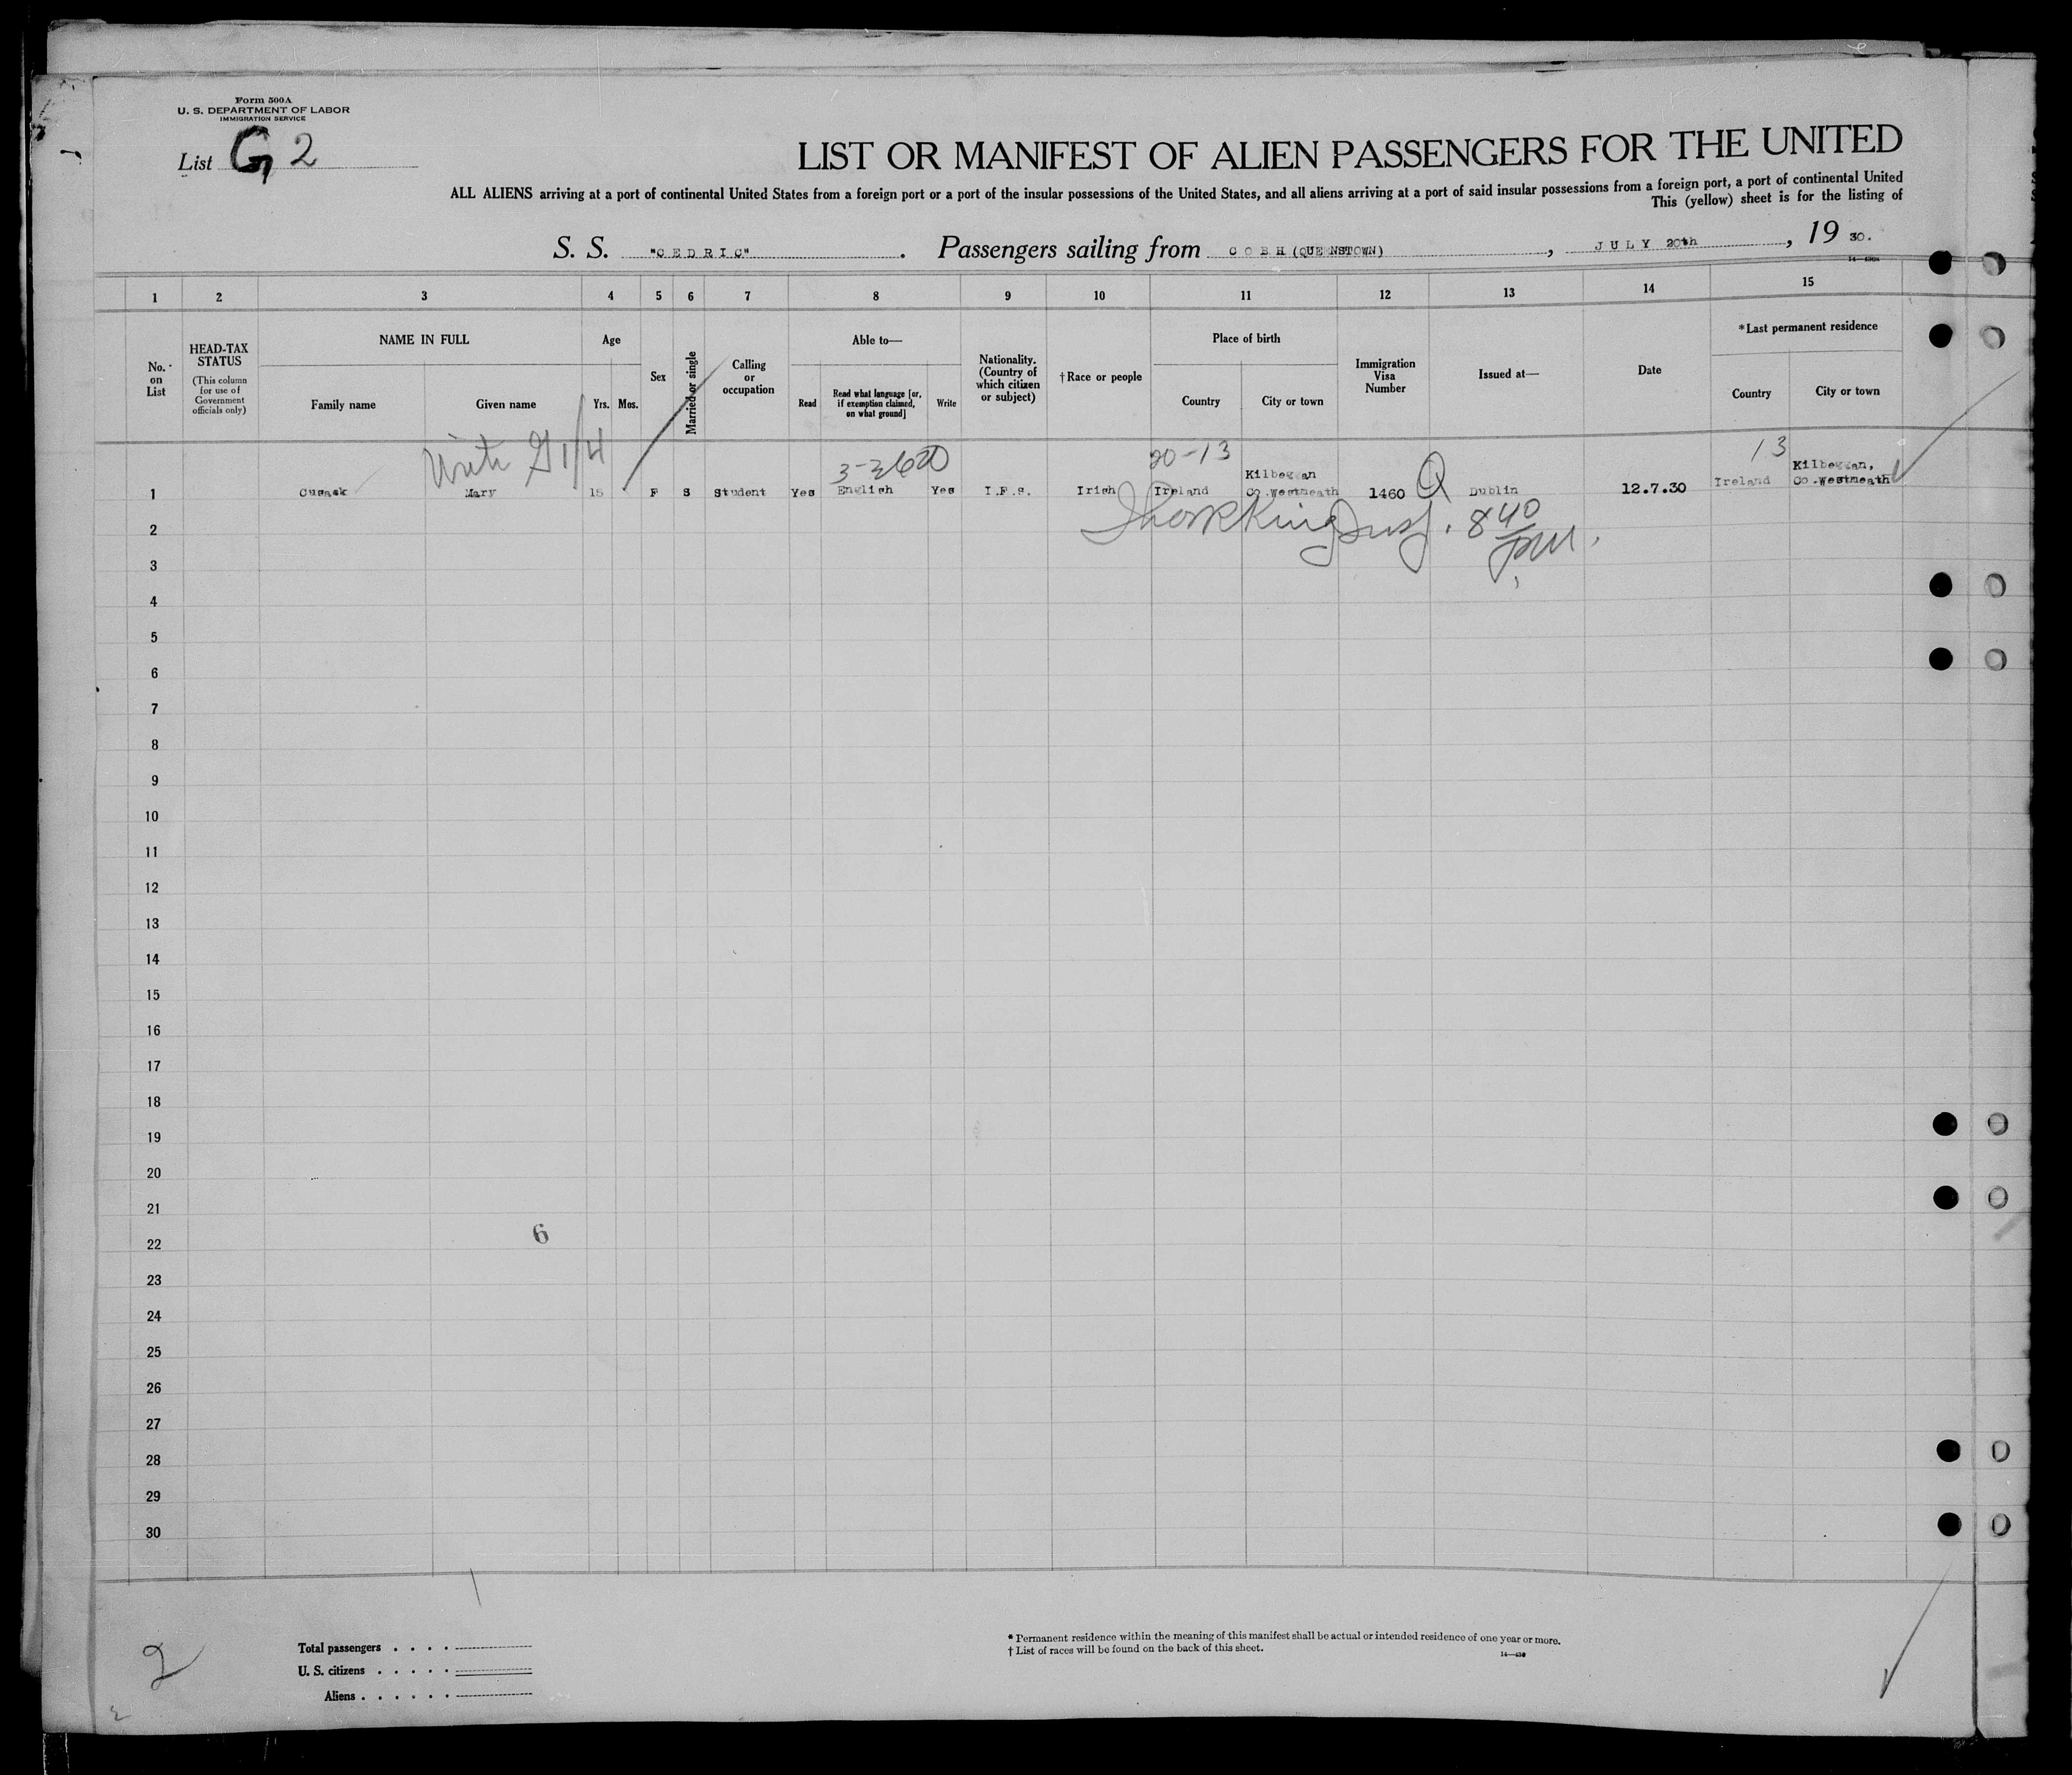 Form 500A
U. S. DEPARTMENT OF LABOR
IMMIGRATION SERVICE
List G 2
LIST OR MANIFEST OF ALIEN PASSENGERS FOR THE UNITED
ALL ALIENS arriving at a port of continental United States from a foreign port or a port of the insular possessions of the United States, and all aliens arriving at a port of said insular possessions from a foreign port, a port of continental United
This (yellow) sheet is for the listing of
S. S. "CEDRIC". Passengers sailing from COBH (QUEENSTOWN), JULY 20th, 19 30.
1 2 3 4 5 6 7 8 9 10 11 12 13 14 15
No. on List
HEAD-TAX STATUS
(This column for use of Government officials only)
NAME IN FULL
Family name
Given name
Age
Yrs. Mos.
Sex
Married or single
Calling or occupation
Able to—
Read
Read what language [or, if exemption claimed, on what ground]
Write
Nationality. (Country of which citizen or subject)
†Race or people
Place of birth
Country
City or town
Immigration Visa Number
Issued at—
Date
*Last permanent residence
Country
City or town
20-13
13
1 Cusack Mary 15 F S Student Yes English Yes I.F.S. Irish Ireland Kilbeggan Co.Westmeath 1460 Q Dublin 12.7.30 Ireland Kilbeggan, Co.Westmeath
8 40
2
3
4
5
6
7
8
9
10
11
12
13
14
15
16
17
18
19
20
21
6
22
23
24
25
26
27
28
29
30
2
Total passengers
U. S. citizens
Aliens
* Permanent residence within the meaning of this manifest shall be actual or intended residence of one year or more.
† List of races will be found on the back of this sheet.